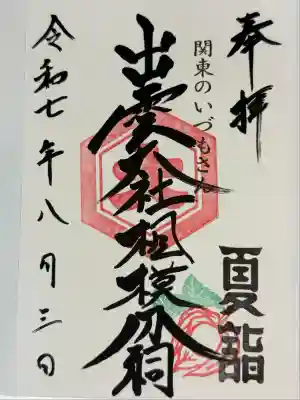 奉拝
夏詣
関東のいづもさん
出雲大社相模分祠
令和七年八月三日